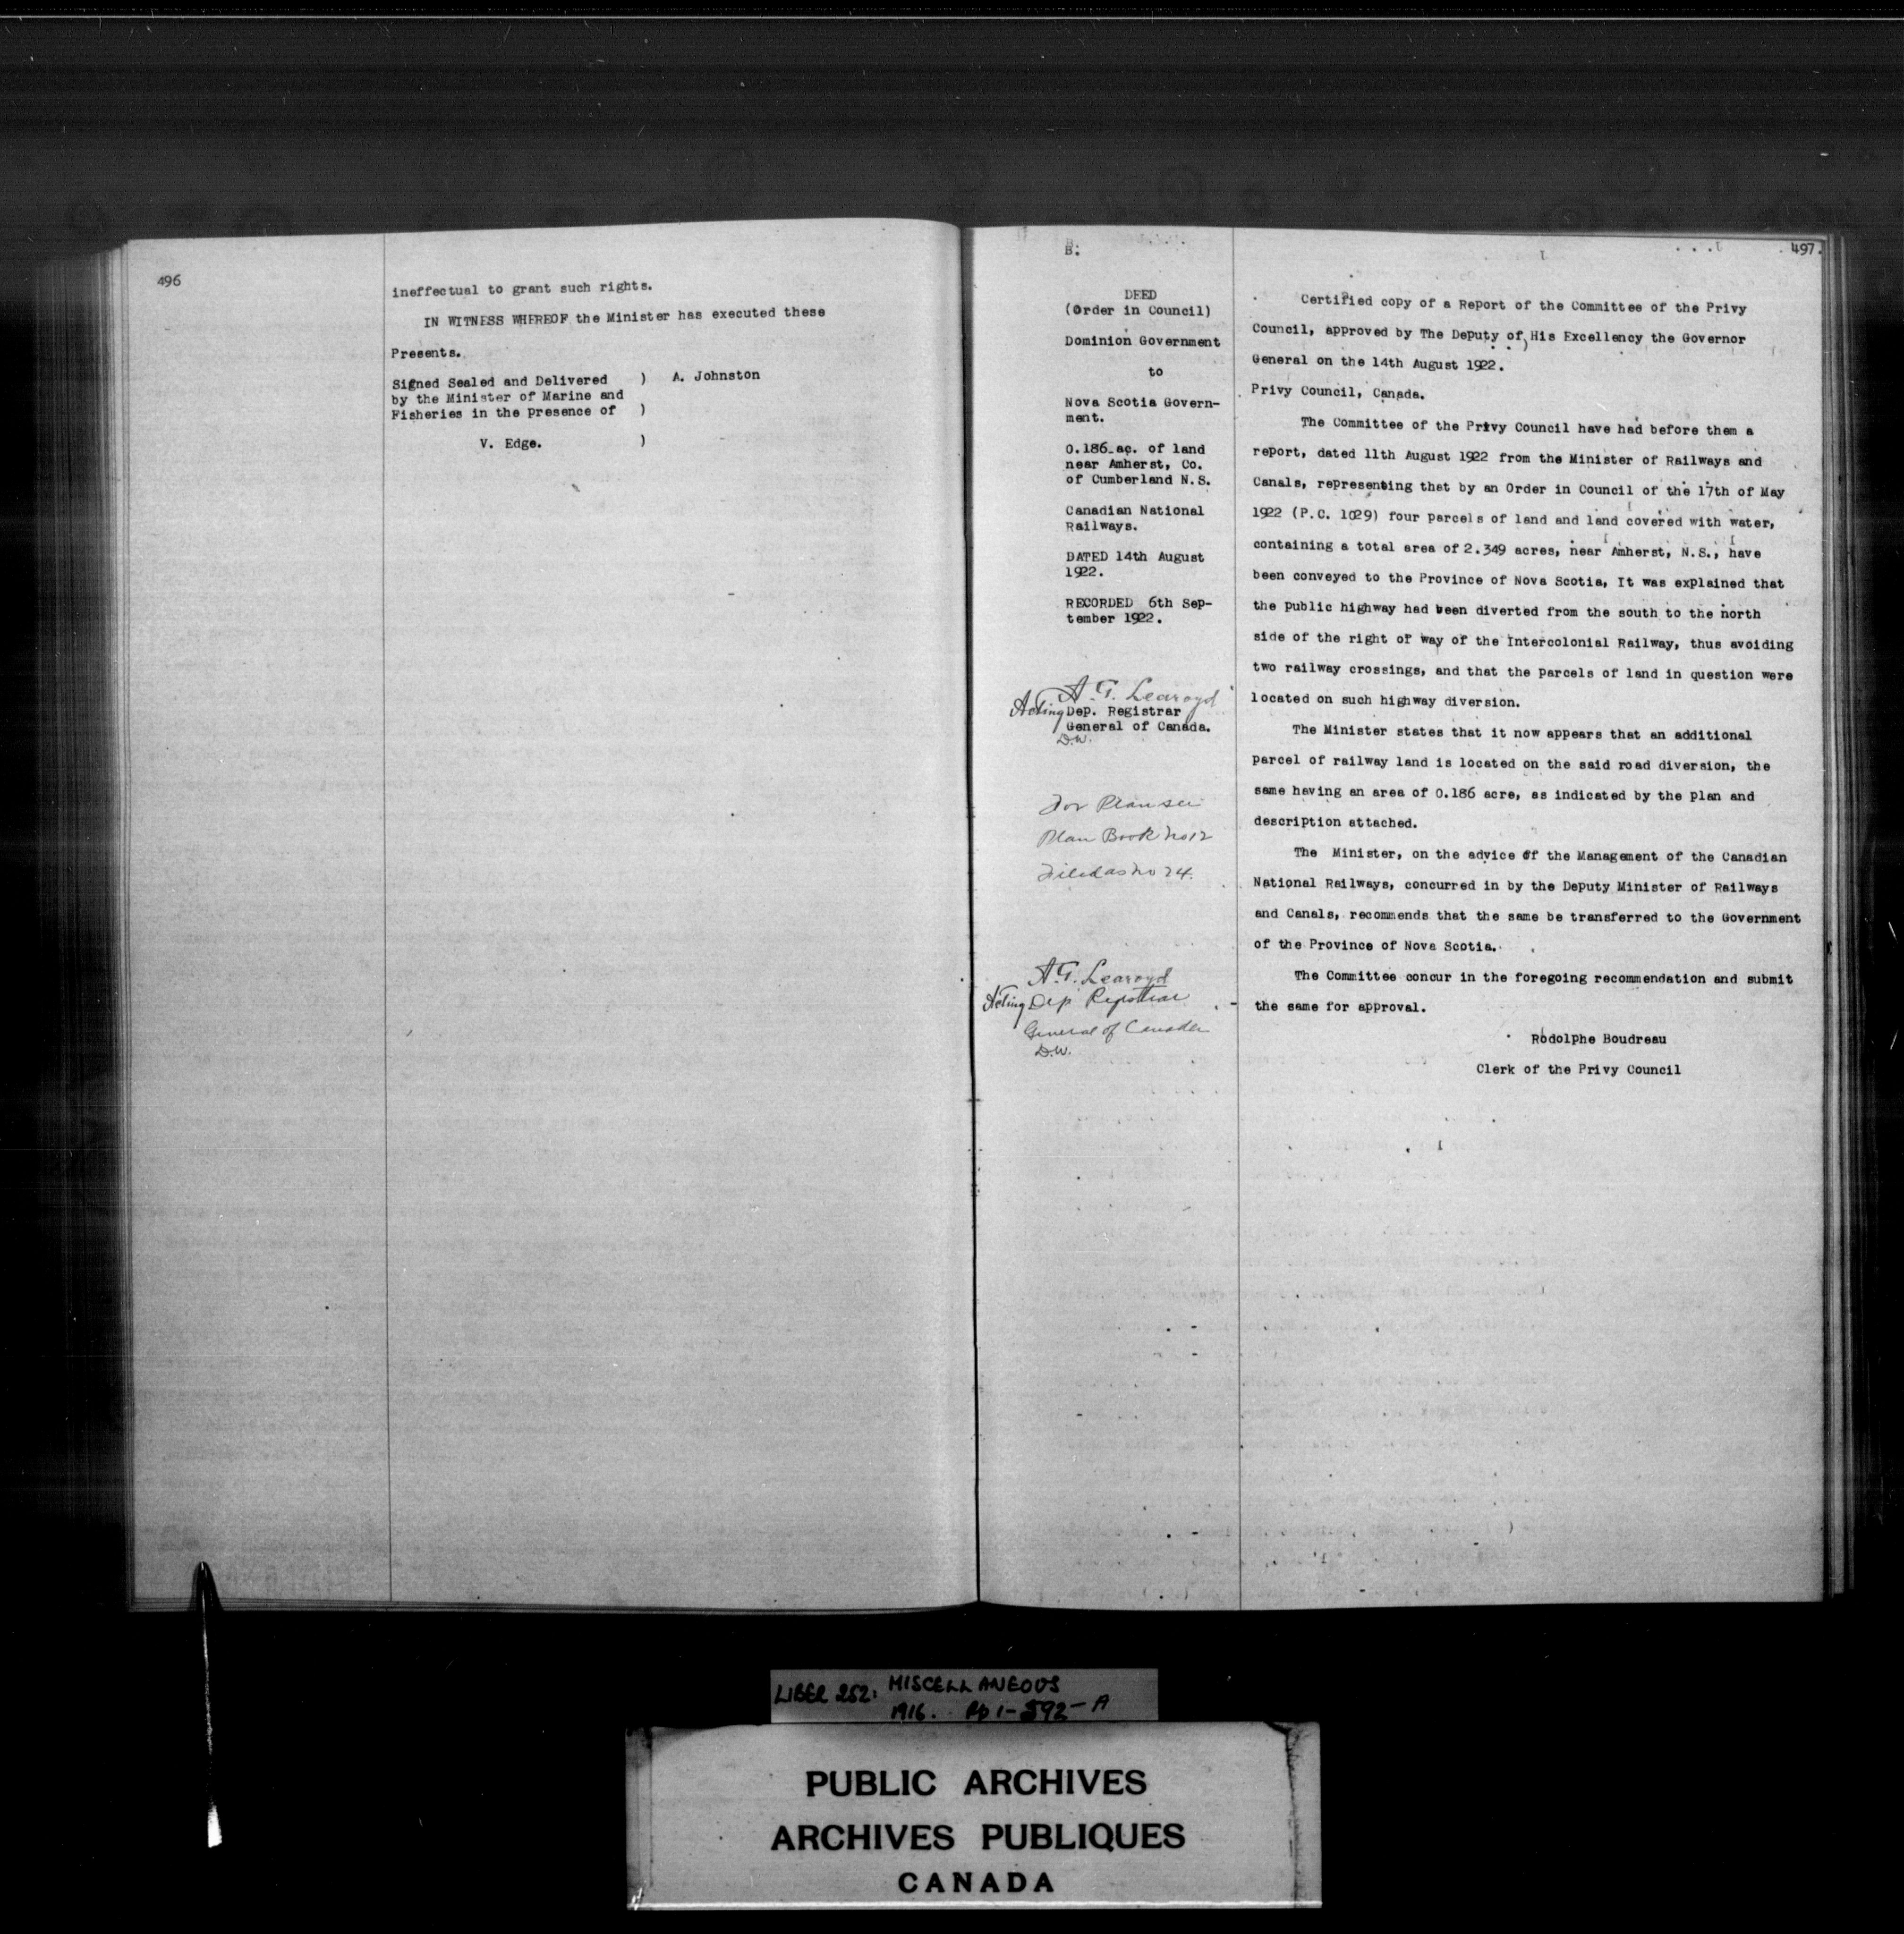 496
ineffectual to grant such rights.
IN WITNESS WHEREOF the Minister has executed these
Presents.
Signed Sealed and Delivered ) A. Johnston
by the Minister of Marine and
Fisheries in the presence of )
V. Edge. )
B.
497.
DEED
(Order in Council)
Dominion Government
to
Nova Scotia Govern-
ment.
0.186 ac. of land
near Amherst, Co.
of Cumberland N.S.
Canadian National
Railways.
DATED 14th August
1922.
RECORDED 6th Sep-
tember 1922.
A.G. Learoyd
Acting Dep. Registrar
General of Canada.
D.W.
For Plan see
Plan Book No 12
Filed as No 24.
A.G. Learoyd
Acting Dep Registrar
General of Canada
D.W.
Certified copy of a Report of the Committee of the Privy
Council, approved by The Deputy of His Excellency the Governor
General on the 14th August 1922.
Privy Council, Canada.
The Committee of the Privy Council have had before them a
report, dated 11th August 1922 from the Minister of Railways and
Canals, representing that by an Order in Council of the 17th of May
1922 (P.C. 1029) four parcels of land and land covered with water,
containing a total area of 2.349 acres, near Amherst, N.S., have
been conveyed to the Province of Nova Scotia, It was explained that
the public highway had been diverted from the south to the north
side of the right of way of the Intercolonial Railway, thus avoiding
two railway crossings, and that the parcels of land in question were
located on such highway diversion.
The Minister states that it now appears that an additional
parcel of railway land is located on the said road diversion, the
same having an area of 0.186 acre, as indicated by the plan and
description attached.
The Minister, on the advice of the Management of the Canadian
National Railways, concurred in by the Deputy Minister of Railways
and Canals, recommends that the same be transferred to the Government
of the Province of Nova Scotia.
The Committee concur in the foregoing recommendation and submit
the same for approval.
Rodolphe Boudreau
Clerk of the Privy Council
LIBER 252: MISCELLANEOUS
1916. Pp 1-592-A
PUBLIC ARCHIVES
ARCHIVES PUBLIQUES
CANADA